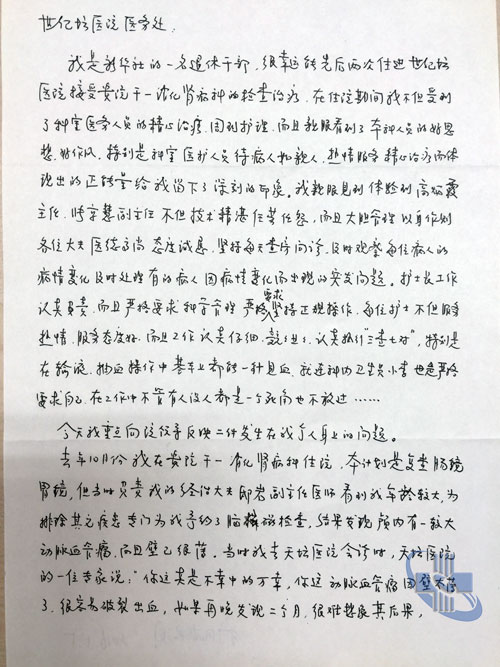 世纪坛医院医务处,
我是新华社的一名退休干部,很幸运能先后两次住进世纪坛
医院接受贵院干一消化肾病科的检查治疗。在住院期间我不但受到
了科室医务人员的精心治疗、周到护理,而且亲眼看到了本科人员的好思
想、好作风,特别是科室医护人员待病人如亲人,热情服务精心治疗而体
现出的正能量给我留下了深刻的印象。我亲眼见到体验到高
主任、张京慧副主任不但技术精湛任劳任怨,而且大胆管理以身作则
各位大夫医德高尚态度诚恳,坚持每天查房问诊,及时观察每位病人的
病情变化及时处理有的病人因病情变化而出现的突发问题。护士长工作
认真负责,而且严格要求科学管理严格要求坚持正规操作,每位护士不但服务
热情、服务态度好,而且工作认真仔细、认真执行"三查七对",特别是
在输液、抽血操作中基本上都能一针见血,就连科内卫生员小李也是严格
要求自己,在工作中不管有人没人都是一个死角也不放过……
今天我重点向院领导反映二件发生在我个人身上的问题。
去年10月份我在贵院干一消化肾病科住院,本计划是复查肠镜
胃镜,但当时负责我的经治大夫邱岩副主任医师看到我年龄较大,为
排除其它疾患专门为我预约了脑核磁检查,结果发现颅内有一较大
动脉血管瘤,而且壁已很薄。当时我去天坛医院会诊时,天坛医院
的一位专家说:"你这真是不幸中的万幸,你这动脉血管瘤因壁太薄
了,很容易破裂出血,如果再晚发现二个月,很难想象其后果,